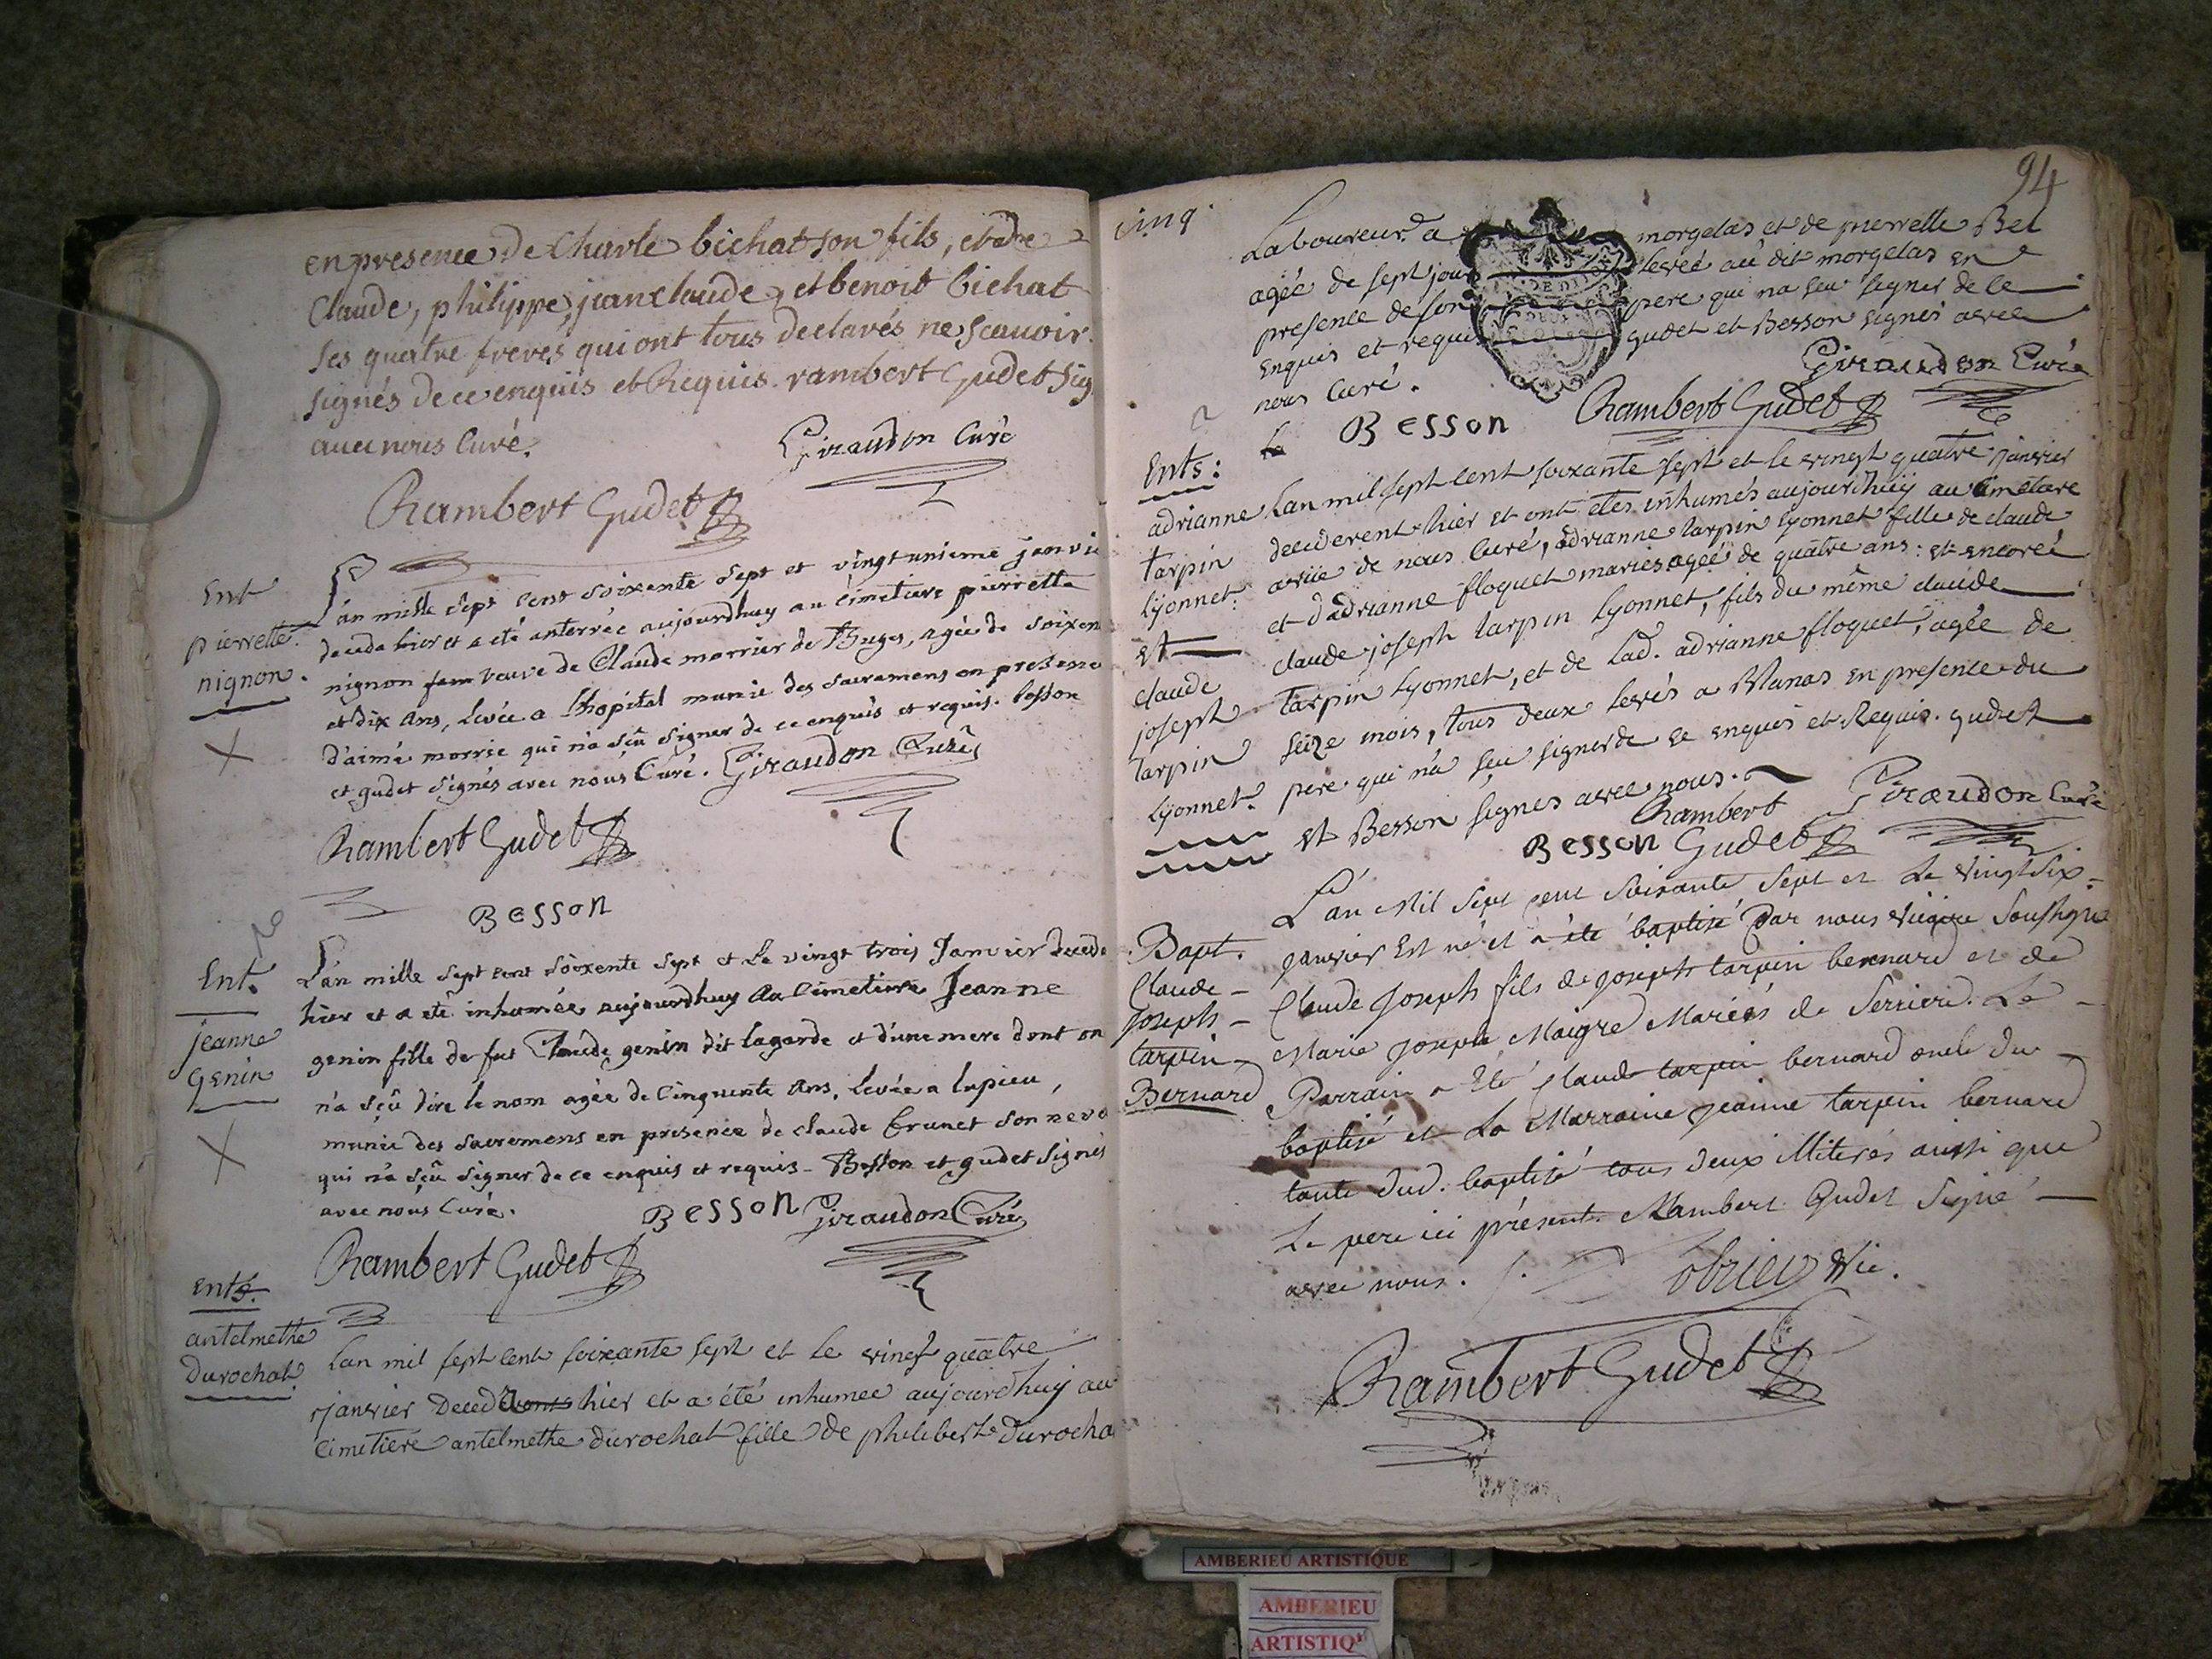 en presence de Charle bichat son fils, et de
Claude, philippe, jean claude, et benoit bichat
ses quatre freres qui ont tous declarés ne scavoir
signés de ce enquis et Requis. rambert Gudet sig
avec nous Curé.
Giraudon Curé
Rambert Gudet
Ent
pierrette
nignon.
L'an mille sept cent soixente sept et vingt unieme janvie
decede hier et a eté anterrée aujourdhuy au cimetiere pierrette
nignon fem veuve de Claude morrier de Thuges, agée de soixen
et dix ans, levée a l'hopital munie des sacremens en presence
d'aimé morrie qui n'a sçu signer de ce enquis et requis. besson
et gudet signés avec nous Curé. Giraudon Curé
Rambert Gudet
Besson
Ent.
jeanne
Genin
L'an mille sept cent soixente sept et le vingt trois Janvier decede
hier et a eté inhumée aujourdhuy au cimetiere Jeanne
genin fille de feu Claude genin dit lagarde et d'une mere dont on
n'a sçu dire le nom agée de Cinquente ans, levée a lupieu,
munie des sacremens en presence de claude brunet son nevo
qui n'a sçu signer de ce enquis et requis - Besson et gudet signés
avec nous Curé.
Besson Giraudon Curé
Rambert Gudet
Ents.
antelmethe
Durochat
Lan mil sept cent soixante sept et le vingt quatre
janvier deced hier et a été inhumee aujourdhuy au
Cimetiere antelmethe durochat fille de philibert Durocha
94
cinq.
Laboureur a morgelas et de pierrette Bel
agée de sept jours levée au dit morgelas en
presence de son pere qui na seu signer de ce
enquis et requis gudet et Besson signés avec
nous Curé.
Giraudon Curé
Besson Rambert Gudet
Ents:
adrianne
tarpin
lyonnet.
et
claude
joseph
tarpin
lyonnet.
Lan mil sept cent soixante sept et le vingt quatre janvier
deciderent hier et ont etes inhumés aujourdhuy au cimetiere
de nous Curé, adrianne tarpin lyonnet fille de claude
et d'adrianne floquet maries agée de quatre ans: et encore
claude joseph tarpin lyonnet, fils du même claude
tarpin lyonnet, et de lad. adrianne floquet, agée de
seize mois, tous deux levés a Vanas en presence du
pere qui n'a seu signer de ce enquis et Requis. gudet
et Besson signés avec nous.
Giraudon Curé
Besson Rambert Gudet
Bapt.
Claude -
Joseph -
tarpin -
Bernard
L'an Mil Sept cent Soixante Sept et Le vingt Six
janvier Est né et a été baptisé par nous vicaire Soussigné
Claude Joseph fils de Joseph tarpin bernard et de
Marie Josephe Maigre Mariés de Serriere. Le
Parrain a Eté Claude tarpin bernard oncle du
baptisé et La Marraine jeanne tarpin bernard
tante dud. baptisé tous deux illiterés aussi que
Le pere ici présent. Rambert Gudet Signé
avec nous.
vic.
Rambert Gudet
AMBERIEU ARTISTIQUE
AMBERIEU
ARTISTIQ